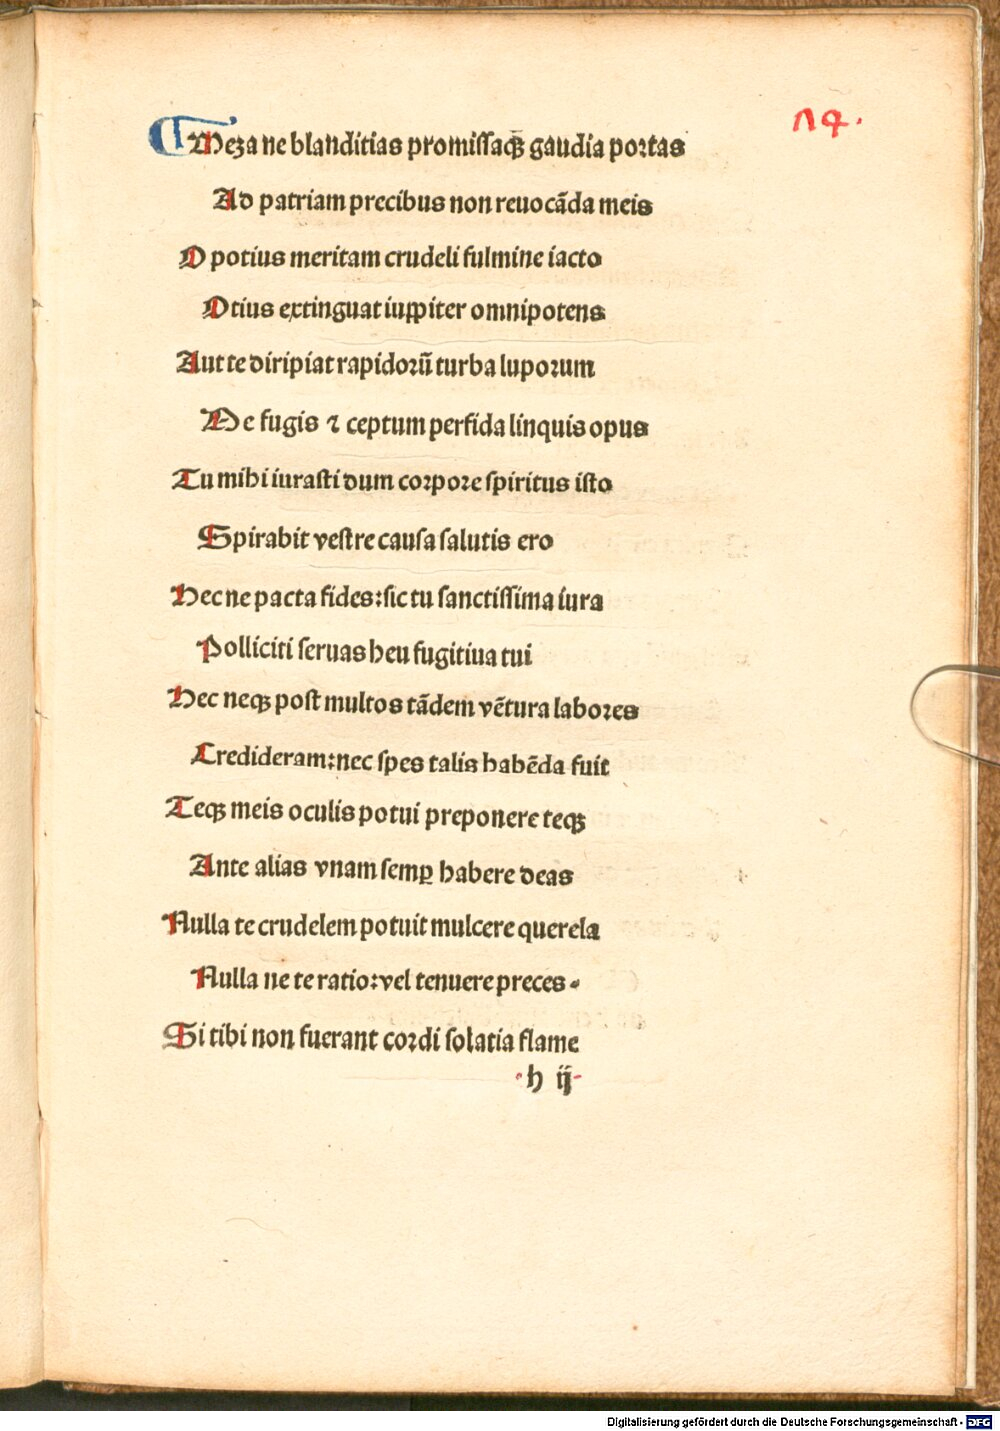 ⁋ Meza ne blanditias promissaqꝫ gaudia portas
Ad patriam precibus non reuocāda meis
O potius meritam crudeli fulmine iacto
Otius extinguat iuppiter omnipotens
Aut te diripiat rapidorū turba luporum
Me fugis ⁊ ceptum perfida linquis opus
Tu mihi iurasti dum corpore spiritus isto
Spirabit vestre causa salutis ero
Hec ne pacta fides: sic tu sanctissima iura
Polliciti seruas heu fugitiua tui
Hec neqꝫ post multos tādem vētura labores
Credideram: nec spes talis habēda fuit
Teqꝫ meis oculis potui preponere teqꝫ
Ante alias vnam semꝑ habere deas
Nulla te crudelem potuit mulcere querela
Nulla ne te ratio: vel tenuere preces.
Si tibi non fuerant cordi solatia flame
h ij
Digitalisierung gefördert durch die Deutsche Forschungsgemeinschaft - DFG